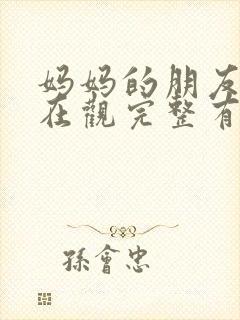 妈妈的朋友
在觀完整有
孫會忠